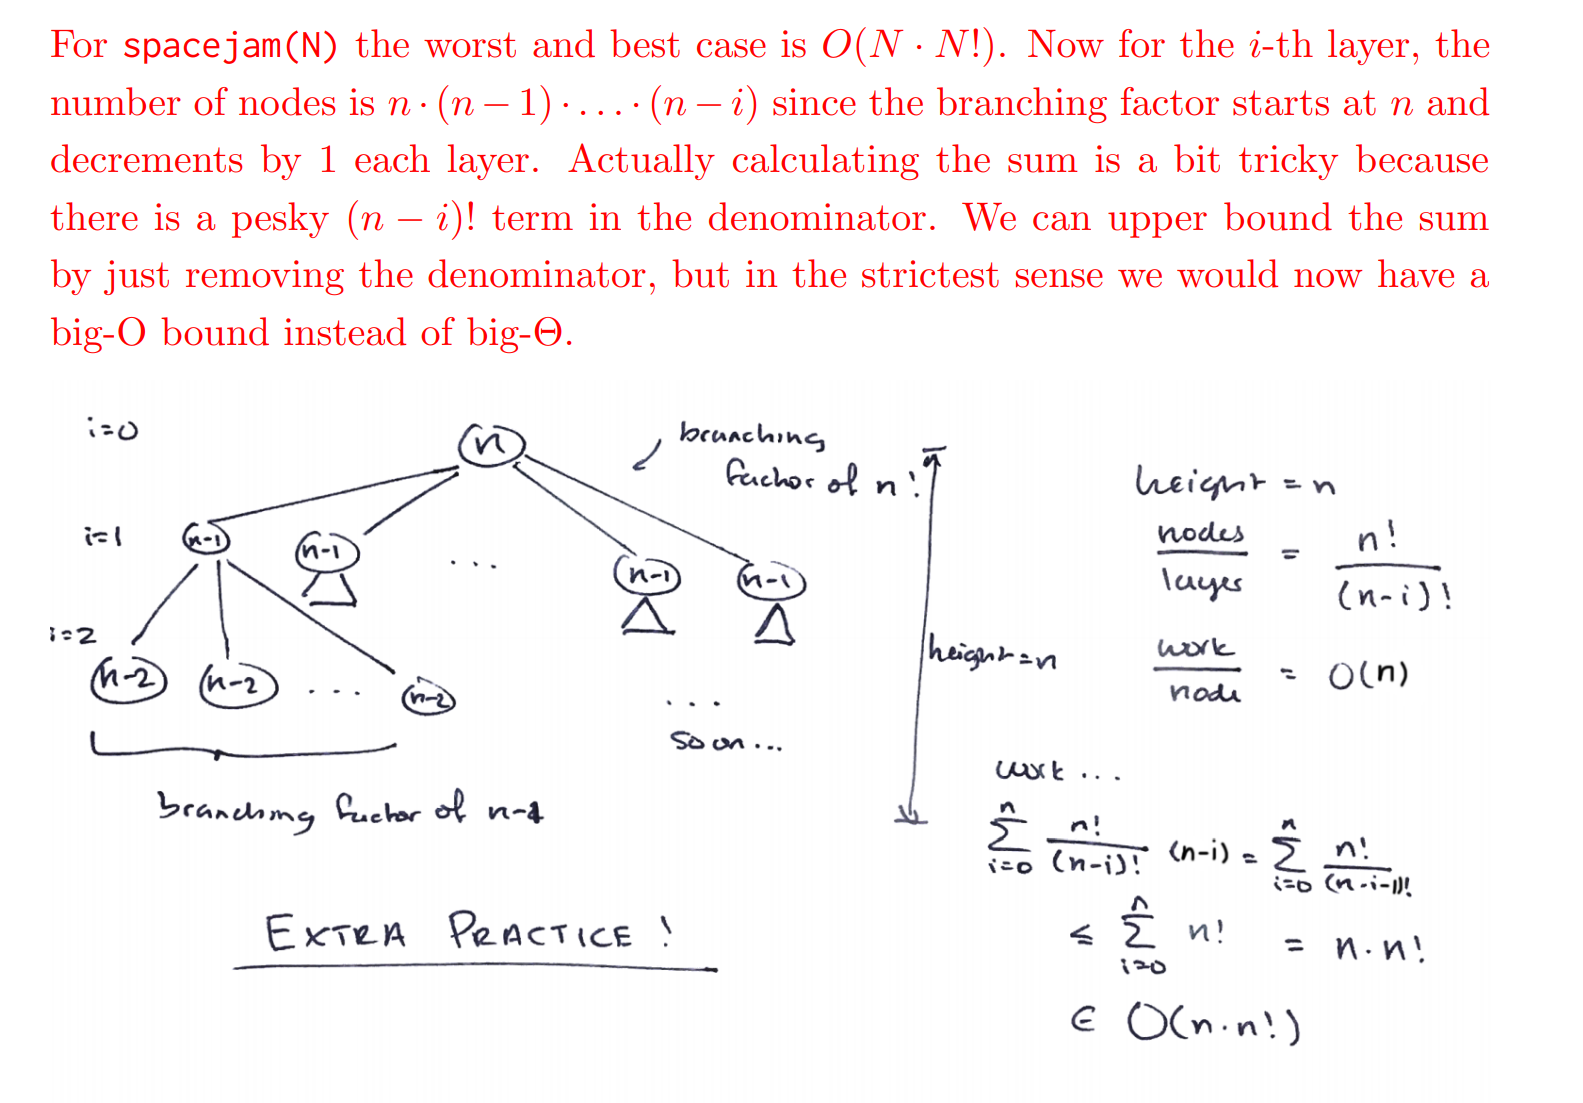 For spacejam(N) the worst and best case is O(N · N!). Now for the i-th layer, the
number of nodes is n · (n − 1) · … · (n − i) since the branching factor starts at n and
decrements by 1 each layer. Actually calculating the sum is a bit tricky because
there is a pesky (n − i)! term in the denominator. We can upper bound the sum
by just removing the denominator, but in the strictest sense we would now have a
big-O bound instead of big-Θ.
i=0
n
branching
factor of n!
i=1
n-1
n-1
...
n-1
n-1
i=2
n-2
n-2
...
n-2
branching factor of n-1
...
so on...
height=n
height = n
nodes/layer = n!/(n-i)!
work/node = O(n)
work ...
∑_{i=0}^{n} n!/(n-i)! (n-i) = ∑_{i=0}^{n} n!/(n-i-1)!
≤ ∑_{i=0}^{n} n! = n·n!
∈ O(n·n!)
EXTRA PRACTICE!